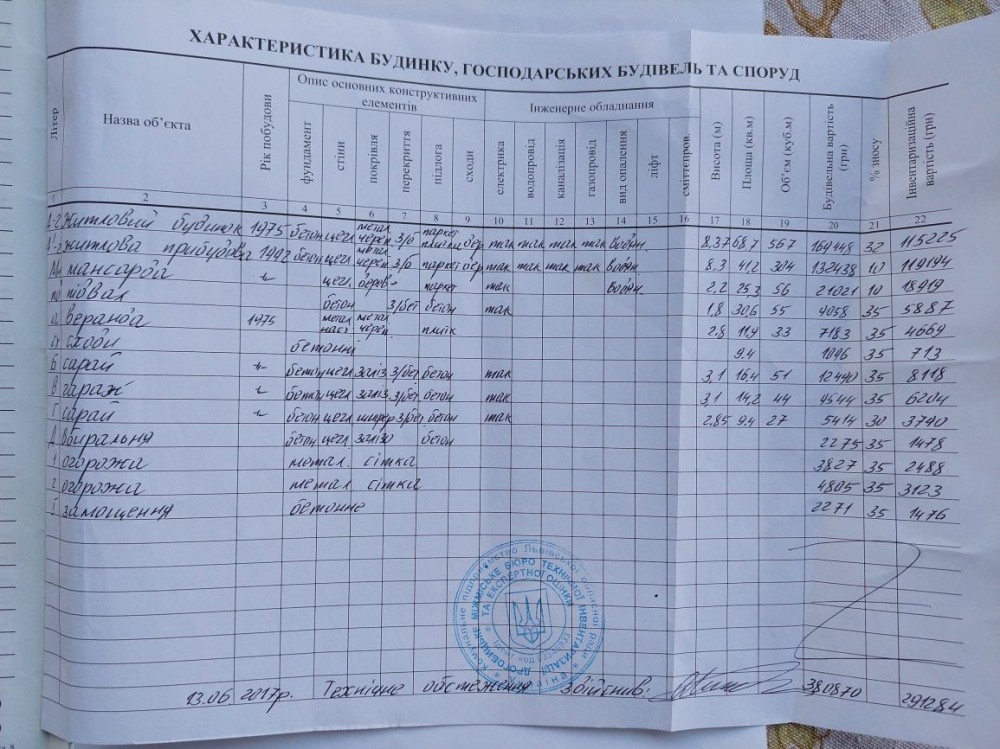 ХАРАКТЕРИСТИКА БУДИНКУ, ГОСПОДАРСЬКИХ БУДІВЕЛЬ ТА СПОРУД
Літер Назва об'єкта Рік побудови Опис основних конструктивних елементів Інженерне обладнання Висота (м) Площа (кв.м) Об'єм (куб.м) Будівельна вартість (грн) % зносу Інвентаризаційна вартість (грн)
фундамент стіни покрівля перекриття підлога сходи електрика водопровід каналізація газопровід вид опалення ліфт сміттєпров.
1 2 3 4 5 6 7 8 9 10 11 12 13 14 15 16 17 18 19 20 21 22
А-2 житловий будинок 1975 бетон цегл метал черен з/б паркет плитки бер так так так так водян. 8,37 68,7 567 169448 32 115225
А'-2 житлова прибудова 1992 бетон цегл метал черен з/б паркет бер так так так так водян 8,3 41,2 304 132438 10 119194
мансарда цегл дерев паркет так водян. 2,2 25,3 56 21021 10 18919
пд підвал бетон з/бет бетон так 1,8 30,6 55 9058 35 5887
веранда 1975 метал наст метал черен. плитк 2.8 11,9 33 7183 35 4669
сх сходи бетонні 9.4 1096 35 713
Б сарай бетон цегл заліз з/бет бетон так 3,1 16,4 51 12490 35 8118
В гараж бетон цегл заліз з/бет бетон так 3,1 14,2 44 9544 35 6204
Г сарай бетон цегл шифер з/бет бетон так 2.85 9.4 27 5414 30 3790
Д вбиральня бетон цегл залізо бетон 2275 35 1478
1 огорожа метал. сітка 3827 35 2488
2 огорожа метал сітка 4805 35 3123
І замощення бетонне 2271 35 1476
Комунальне підприємство Львівської обласної ради
ДРОГОБИЦЬКЕ МІЖМІСЬКЕ БЮРО ТЕХНІЧНОЇ ІНВЕНТАРИЗАЦІЇ
ТА ЕКСПЕРТНОЇ ОЦІНКИ
13.06 2017р. Технічне обстеження здійснив. 380870 291284